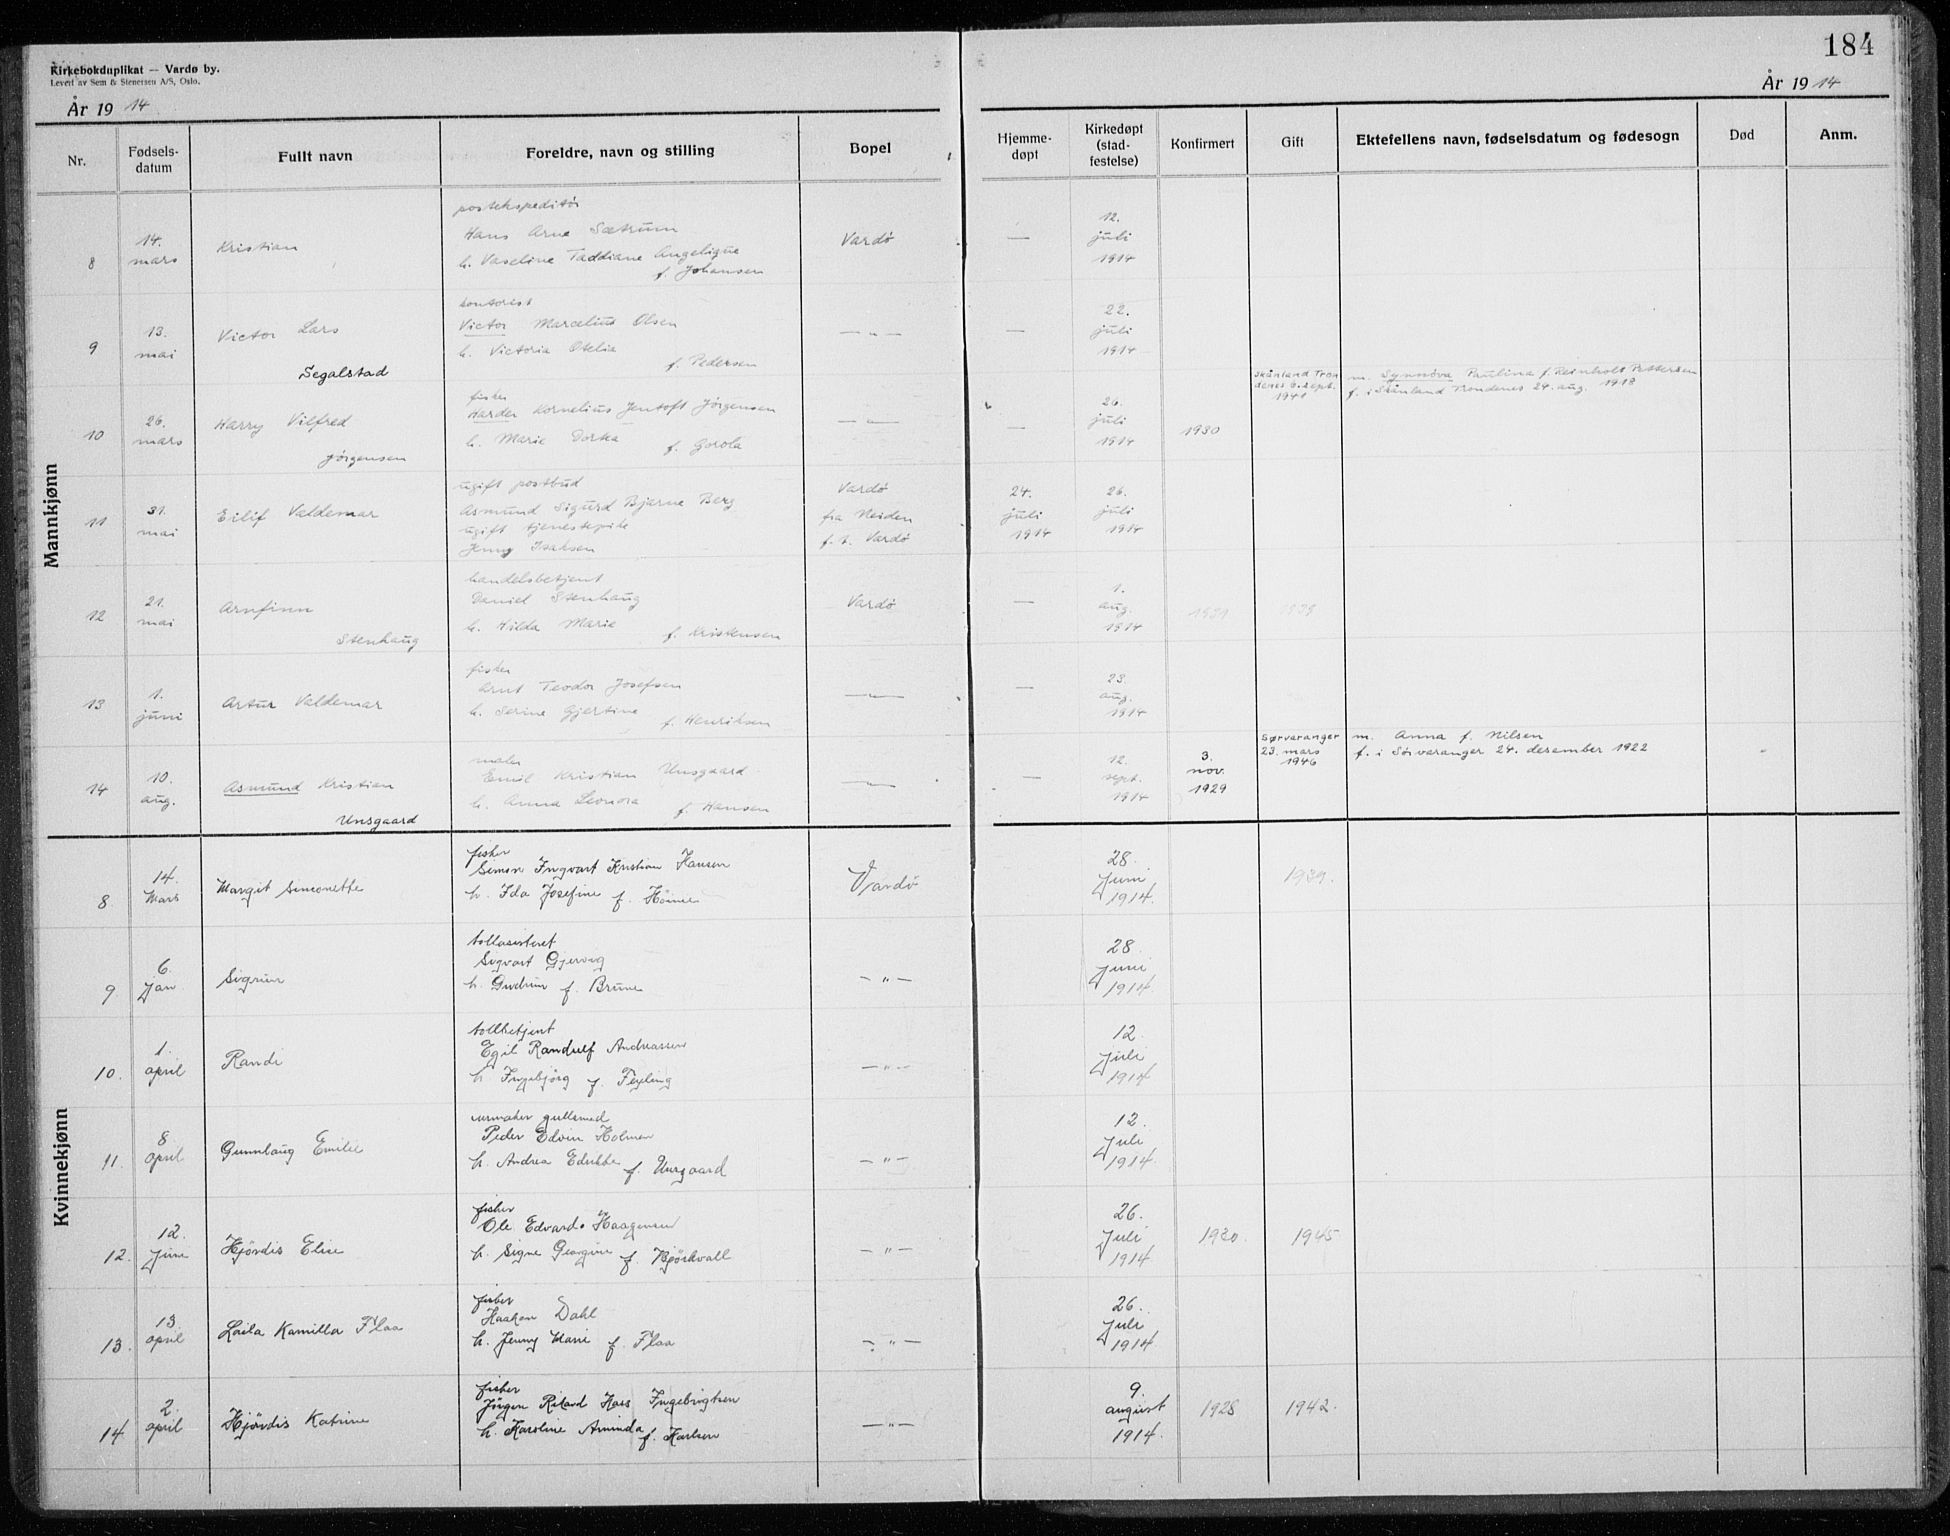 184
Kirkebokduplikat — Vardø by.
Levert av Sem & Stenersen A/S, Oslo.
År 19 14
År 19 14
Nr.
Fødsels-
datum
Fullt navn
Foreldre, navn og stilling
Bopel
Hjemme-
døpt
Kirkedøpt
(stad-
festelse)
Konfirmert
Gift
Ektefellens navn, fødselsdatum og fødesogn
Død
Anm.
Mannkjønn
8
14.
mars
Kristian
postekspeditör
Hans Arne Sætrum
h. Vaseline Taddiane Angelique
f. Johansen
Vardö
—
12.
juli
1914
9
13.
mai
Victor Lars
Segalstad
kontorist
Victor Marcelius Olsen
h. Victoria Otelia
f. Pedersen
— " —
—
22.
juli
1914
Skånland Tron
denes 6. sept.
1941
m. Synnöva Paulina f. Reinholt Pettersen
f. i Skånland Trondenes 24. aug. 1918
10
26.
mars
Harry Vilfred
Jörgensen
fisker
Harder Kornelius Jentoft Jörgensen
h. Marie Dorka f. Gorola
— " —
—
26.
juli
1914
1930
11
31.
mai
Eilif Valdemar
ugift postbud
Asmund Sigurd Bjarne Berg
ugift tjenestepike
Jenny Isaksen
Vardö
fra Neiden
f.t. Vardö
24.
juli
1914
26.
juli
1914
12
21.
mai
Arnfinn
Stenhaug
handelsbetjent
Daniel Stenhaug
h. Hilda Marie f. Kristensen
Vardö
—
1.
aug.
1914
1939
13
1.
juni
Artur Valdemar
fisker
Arnt Teodor Josefsen
h. Serine Gjertine f. Henriksen
— " —
—
23.
aug.
1914
14
10.
aug.
Asmund Kristian
Unsgaard
maler
Emil Kristian Unsgaard
h. Anna Leonora f. Hansen
— " —
—
12.
sept.
1914
3.
nov.
1929
Sørvaranger
23. mars
1946
m. Anna f. Nilsen
f. i Sörvaranger 24. desember 1922
Kvinnekjønn
8.
14.
Mars
Margit Simonette
fisker
Simon Ingvart Kristian Hansen
h. Ida Josefine f.
Vardö
28.
Juni
1914.
1939.
9
6.
Jan.
Sigrun
tollassistent
Sigvart Gjervig
h. Gudrun f. Brune
— " —
28.
Juni
1914.
10.
1.
april
Randi
tollbetjent
Egil Randulf Andreassen
h. Ingebjörg f. Fexling
— " —
12.
Juli
1914
11.
8
april
Gunnlaug Emilie
urmaker gullsmed
Peder Edvin Holmen
h. Andrea f. Unsgaard
— " —
12.
Juli
1914.
12.
12.
Juni
Hjördis Elise
fisker
Ole Edvard Haagensen
h. Signe Georgine f. Bjørkvall
— " —
26.
Juli
1914
1930.
1945
13.
13.
april
Laila Kamilla Flaa
fisker
Haakon Dahl
h. Jenny Marie f. Flaa
— " —
26.
Juli
1914
14
2.
april
Hjördis Katrine
fisker
Jörgen Rikard Hans Ingebrigtsen
h. Karoline Aminda f. Karlsen
— " —
9.
august
1914.
1928
1942.